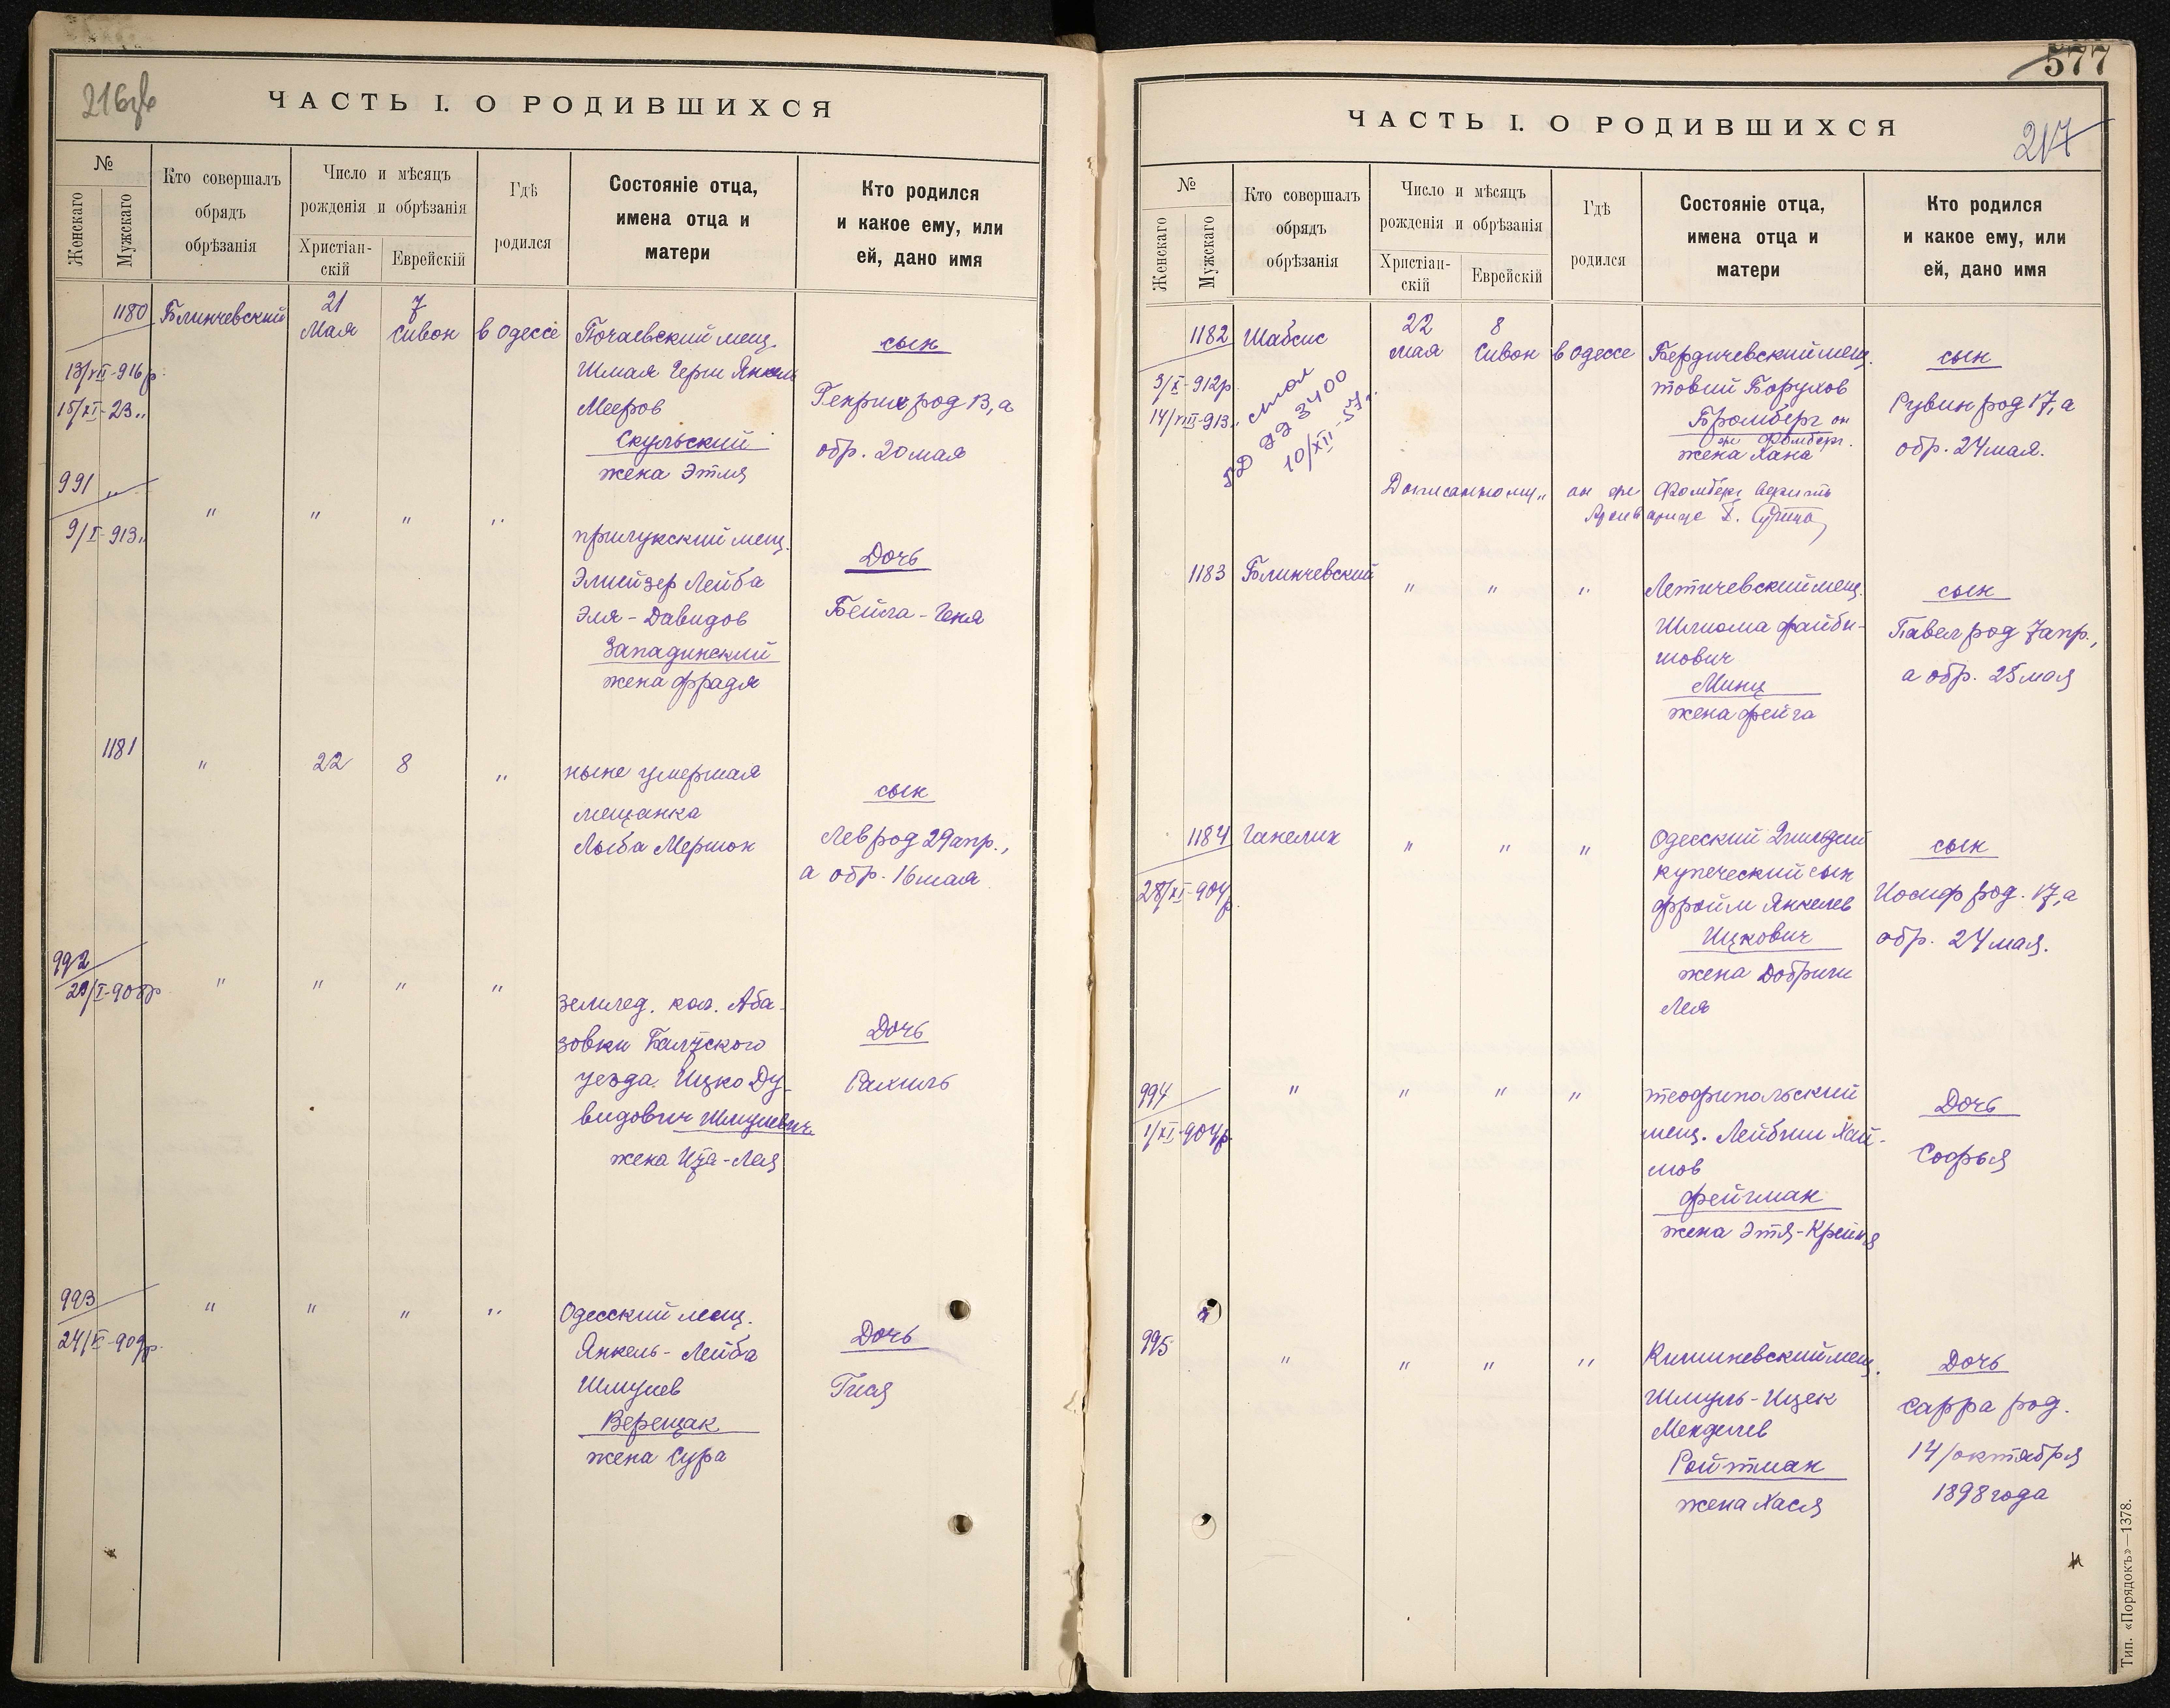 ЧАСТЬ I. О РОДИВШИХСЯ
№
Женскаго
Мужскаго
Кто совершалъ
обрядъ
обрѣзанія
Число и мѣсяцъ
рожденія и обрѣзанія
Христіан-
скій
Еврейскій
Гдѣ
родился
Состояніе отца,
имена отца и
матери
Кто родился
и какое ему, или
ей, дано имя
1180
13/VII-916р
15/XI-23"
Блинчевский
21
Мая
7
Сивон
в Одессе
Почаевский мещ.
Шмая Герш Янкель
Мееров
Скульский
жена Этля
сын
Генрих род 13, а
обр. 20 мая
991 "
9/I-913"
" " " "
прилукский мещ.
Элиейзер Лейба
Эля-Давидов
Западинский
жена Фрадя
Дочь
Бейла-Геня
1181
" 22 8 "
ныне умершая
мещанка
Лыба Мершон
сын
Лев род 29 апр.,
а обр. 16 мая
992
" " " "
землед. кол. Аба-
зовки Балтского
уезда. Ицко Ду-
видович Шмулевич
жена Ита-Лея
Дочь
Рахиль
993
" " " "
Одесский мещ.
Янкель-Лейба
Шмулев
Верещак
жена Сура
Дочь
Гися
577
217
ЧАСТЬ I. О РОДИВШИХСЯ
№
Женскаго
Мужскаго
Кто совершалъ
обрядъ
обрѣзанія
Число и мѣсяцъ
рожденія и обрѣзанія
Христіан-
скій
Еврейскій
Гдѣ
родился
Состояніе отца,
имена отца и
матери
Кто родился
и какое ему, или
ей, дано имя
1182
3/X-912р
14/VIII-913"
3400
10/XII-57г.
Шабсис
22
мая
8
Сивон
в Одессе
Бердичевский мещ.
Товий Борухов
Бромберг он
же Фомберг.
жена Хана
сын
Рувин род 17, а
обр. 24 мая.
Дописанному " он же Фомберг верить
1183
Блинчевский
" " "
Летичевский мещ.
Шлиома Файби-
шович
Минц
жена Фейга
сын
Павел род 7 апр.,
а обр. 25 мая
1184
28/XI-904р.
Ганелих
" " "
Одесский 2 гильдии
купеческий сын
Фроим Янкелев
Ицкович
жена Добриш
Лея
сын
Иосиф род. 17, а
обр. 24 мая.
994
1/XI-904р.
" " " "
теофипольский
мещ. Лейбиш Хай-
мов
Фейгман
жена Этя-Крейня
Дочь
Софья
995
" " " "
Кишиневский мещ.
Шмуль-Ицек
Менделев
Ройтман
жена Хася
Дочь
Сарра род.
14/октября
1898 года
Тип. «Порядокъ»—1378.